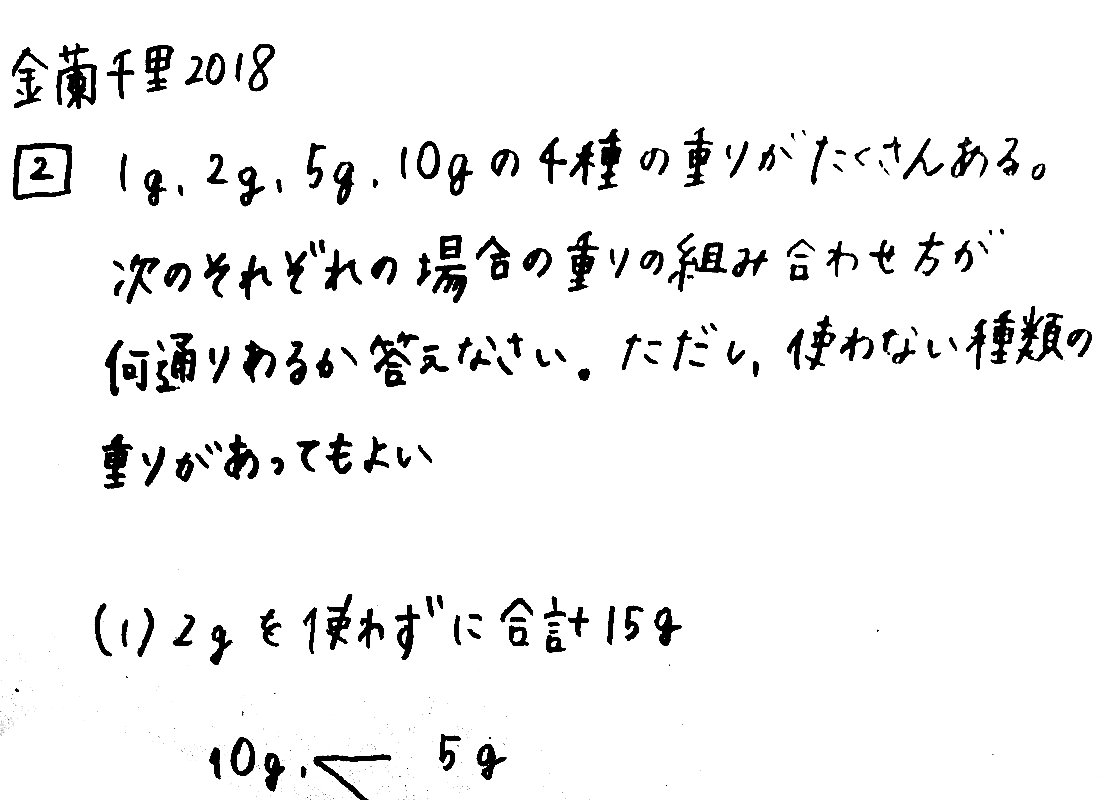 金蘭千里2018
2 1g、2g、5g、10gの4種の重りがたくさんある。
次のそれぞれの場合の重りの組み合わせ方が
何通りあるか答えなさい。ただし、使わない種類の
重りがあってもよい
(1) 2gを使わずに合計15g
10g、 5g